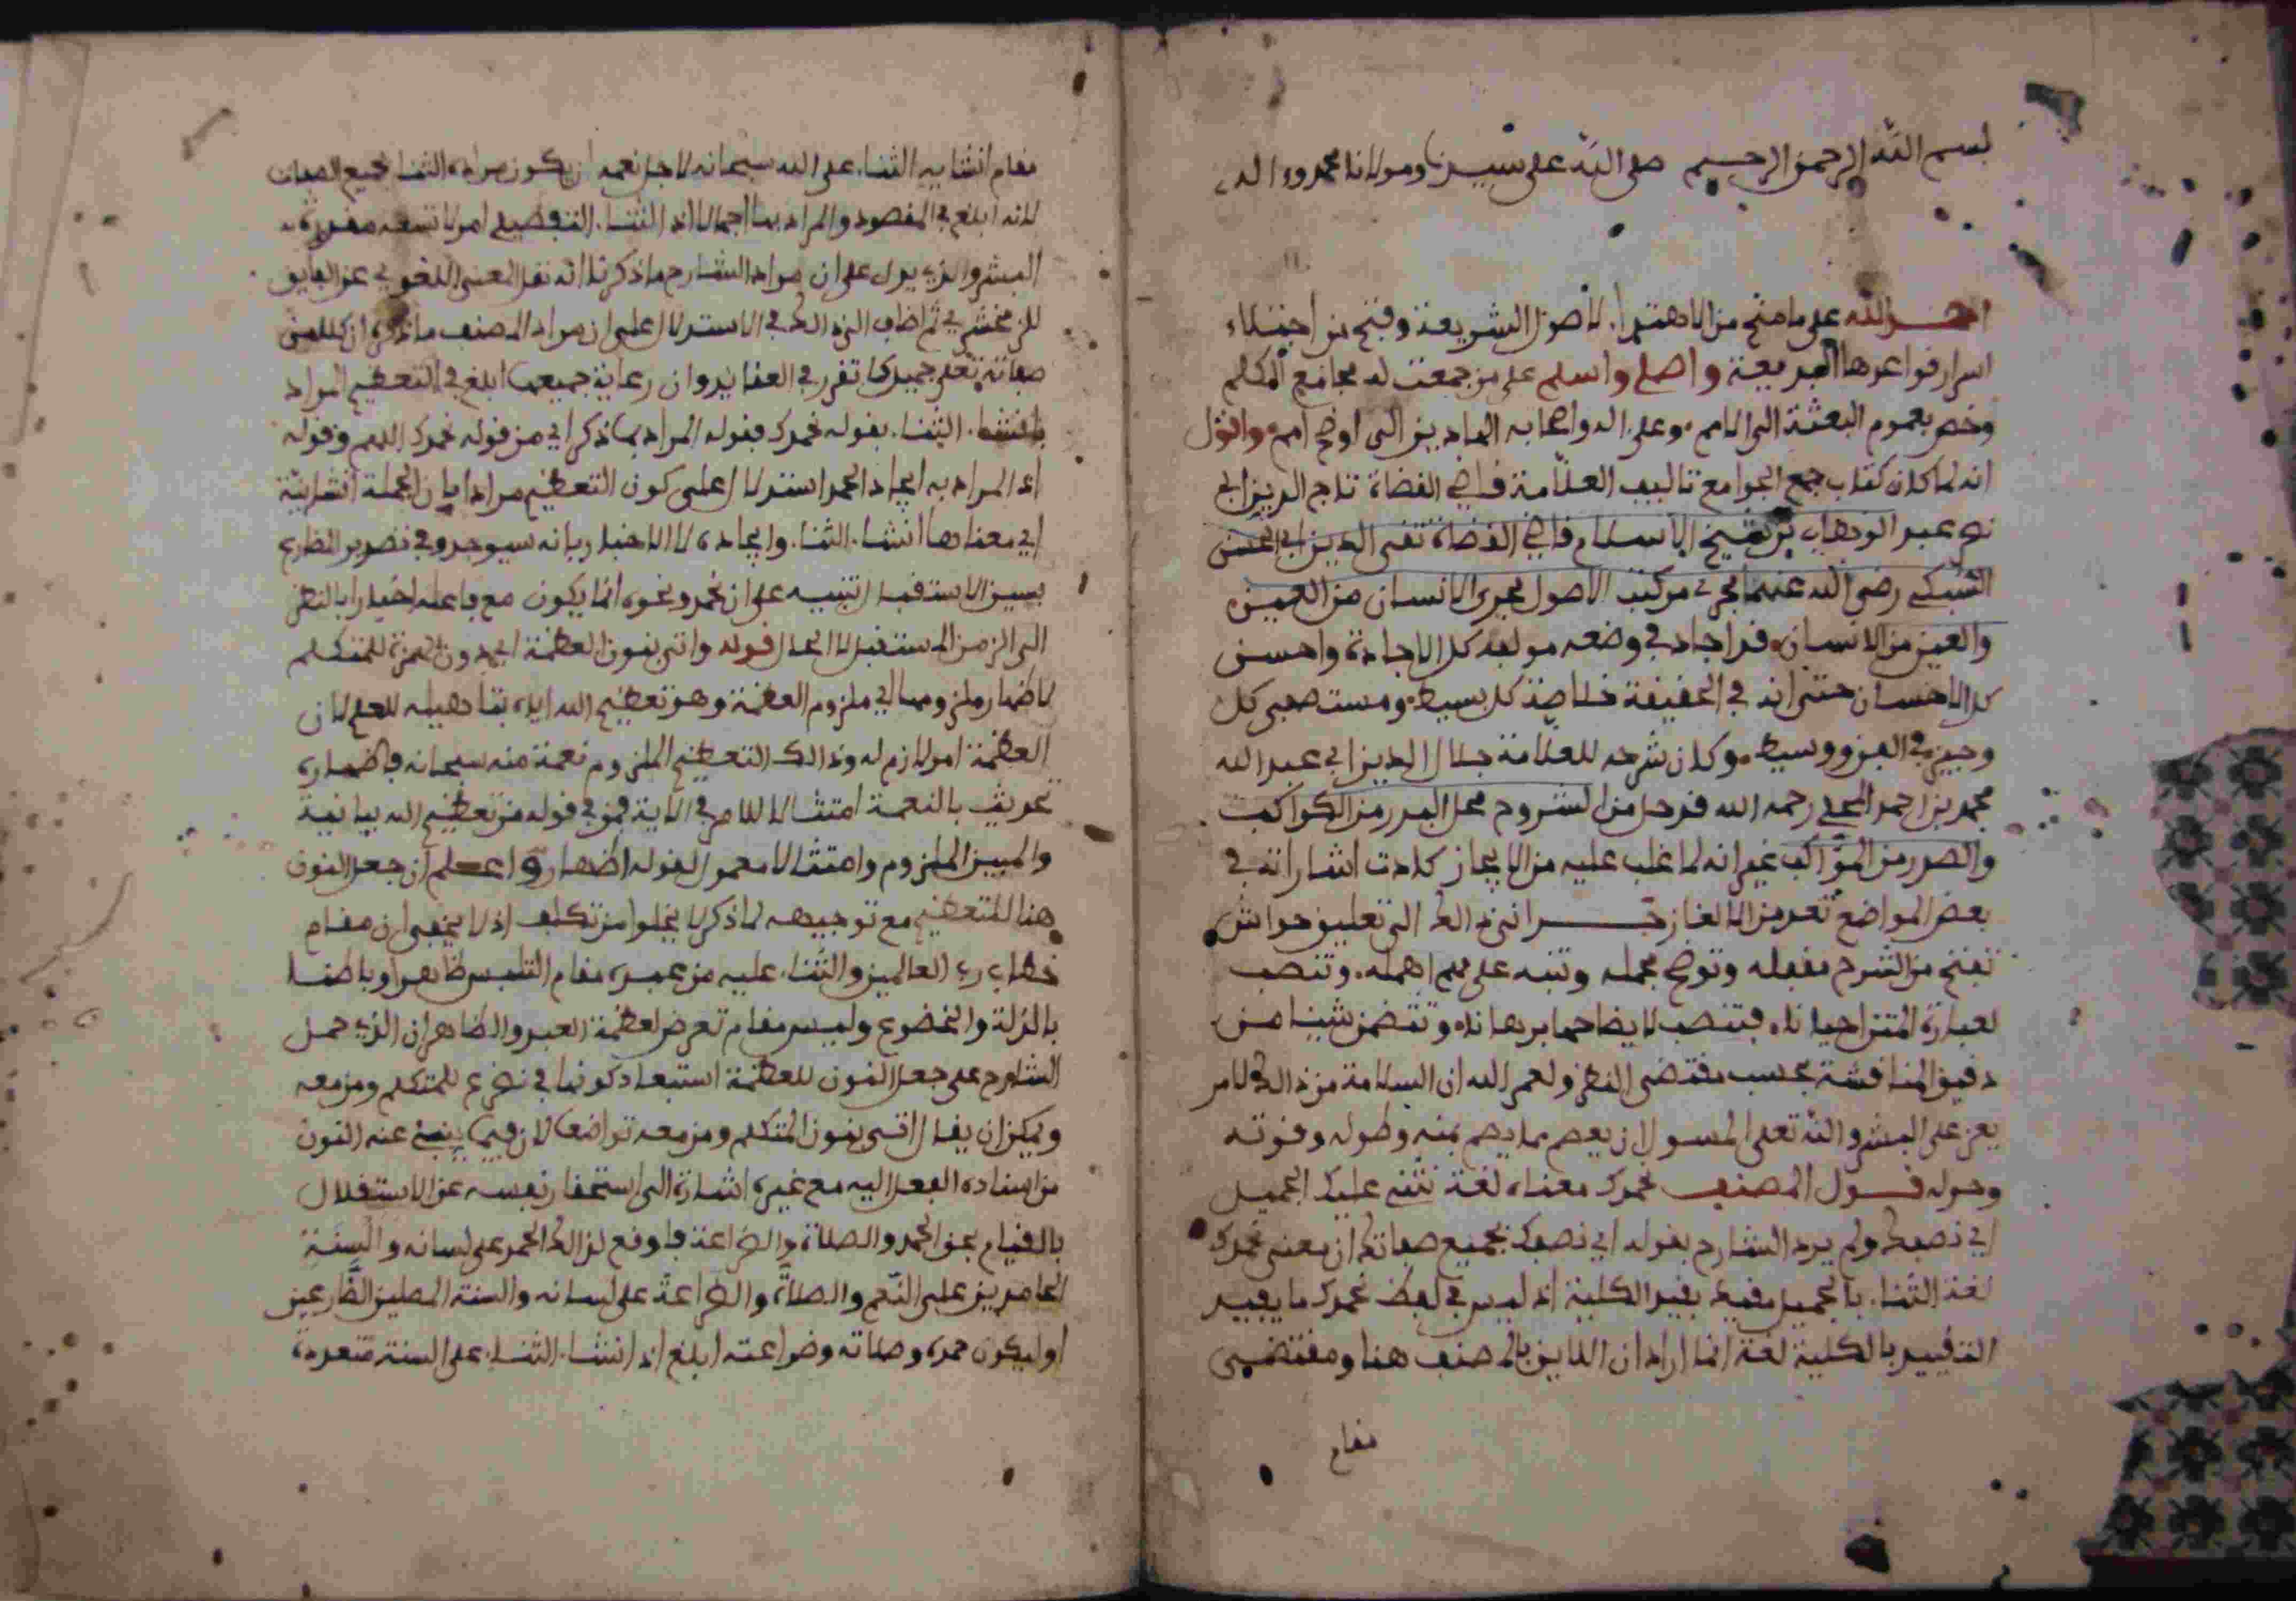 بسم الله الرحمن الرحيم صلى الله على سيدنا ومولانا محمد وءاله
الحمد لله على ما منح من الاهتداء لاصول الشريعة وفتح من اجتلاء
اسرار قواعدها البديعة واصلي واسلم على من جمعت له مجامع الكلم
وخص بعموم البعثة الى الامم وعلى اله واصحابه الهادين الى اوضح امم واقول
انه لما كان كتاب جمع الجوامع تاليف العلامة قاضي القضاة تاج الدين ابي
نصر عبد الوهاب بن شيخ الاسلام قاضي القضاة تقي الدين ابي الحسن
السبكي رضي الله عنهما يجري من كتب الاصول مجرى الانسان من العين
والعين من الانسان قد اجاد في وضعه مولفه كل الاجادة واحسن
كل الاحسان حتى انه في الحقيقة خلاصة كل بسيط ومستصفى كل
وجيز في الفن ووسيط وكان شرحه للعلامة جلال الدين ابي عبد الله
محمد بن احمد المحلي رحمه الله قد حل من الشروح محل البدر من الكواكب
والصدر من المواكب غير انه لما غلب عليه من الايجاز كادت اشاراته في
بعض المواضع تعد من الالغاز حرانى ذالك الى تعليق حواش
تفتح من الشرح مقفله وتوضح مجمله وتنبه على مهم اهمله وتنصب
لعبارة المتن احيانا فتنصب لايضاحها برهانا وتتضمن شيئا من
دقيق المناقشة بحسب مقتضى النظر ولعمر الله ان السلامة من ذالك لامر
يعز على البشر والله تعلى المسول ان يعصم مما يصم بمنه وطوله وقوته
وحوله قول المصنف نحمدك معناه لغة نثني عليك الجميل
اي نصفك ولم يرد الشارح بقوله اي نصفك بجميع صفاتك ان معنى نحمدك
لغة الثناء بالجميل مقيد بقيد الكلية اذ ليس في لفظ نحمدك ما يفيد
التقييد بالكلية لغة انما اراد ان اللايق بالمصنف هنا ومقتضى
مقام
مقام انشايه الثناء على الله سبحانه لاجل نعمه ان يكون مراده الثناء بجميع الصفات
لانه ابلغ في المقصود والمراد بها اجمالا اذ الثناء التفصيلي امر لا تسعه مقدرة
البشر والذي يدل على ان مراد الشارح ما ذكرنا انه نقل المعنى اللغوي عن الفايق
للزمخشري ثم اضاف الى ذالك في الاستدلال على ان مراد المصنف ما ذكره ان كلا من
صفاته تعلى جميل كما تقرر في العقايد وان رعاية جميعها ابلغ في التعظيم المراد
بانشاء الثناء بقوله نحمدك فقوله المراد بما ذكر اي من قوله نحمدك اللهم وقوله
اذ المراد به ايجاد الحمد استدلال على كون التعظيم مرادا بان الجملة انشائية
اي معناها انشاء الثناء وايجاده لا الاخبار بانه سيوجد وفي تصدير المضارع
بسين الاستقبال تنبيه على ان نحمد ونحوه انما يكون مع فاعله اخبارا بالنظر
الى الزمن المستقبل لا الحال قوله واتى بنون العظمة اي دون همزة للمتكلم
لاظهار ملزومها اي ملزوم العظمة وهو تعظيم الله اياه بتاهيله للعلم لان
العظمة امر لازم له وذالك التعظيم الملزوم نعمة منه سبحانه فاظهاره
تحديث بالنعمة امتثالا للامر في الاية فمن في قوله من تعظيم الله بيانية
والمبين الملزوم وامتثالا معمول لقوله اظهار واعلم ان جعل النون
هنا للتعظيم مع توجيهه لما ذكر لا يخلوا من تكلف اذ لا يخفى ان مقام
خطاب رب العالمين والثناء عليه من عبده مقام التلبس ظاهرا وباطنا
بالذلة والخضوع وليس مقام تعرض لعظمة العبد والظاهر ان الذي حمل
الشارح على جعل النون للعظمة استبعاد كونها في نضرع للمتكلم ومن معه
ويمكن ان يقال اتى بنون المتكلم ومن معه تواضعا لان فيما ينبئ عنه النون
من اسناده الفعل اليه مع غيره اشارة الى استحقار نفسه عن الاستقلال
بالقيام بحق الحمد والصلاة والضراعة فاوقع لذالك الحمد على لسانه والسنة
الحامدين على النعم والصلاة والضراعة على لسانه والسنة المصلين الضارعين
او ليكون حمده وصلاته وضراعته ابلغ اذ انشاء الثناء على السنة متعددة